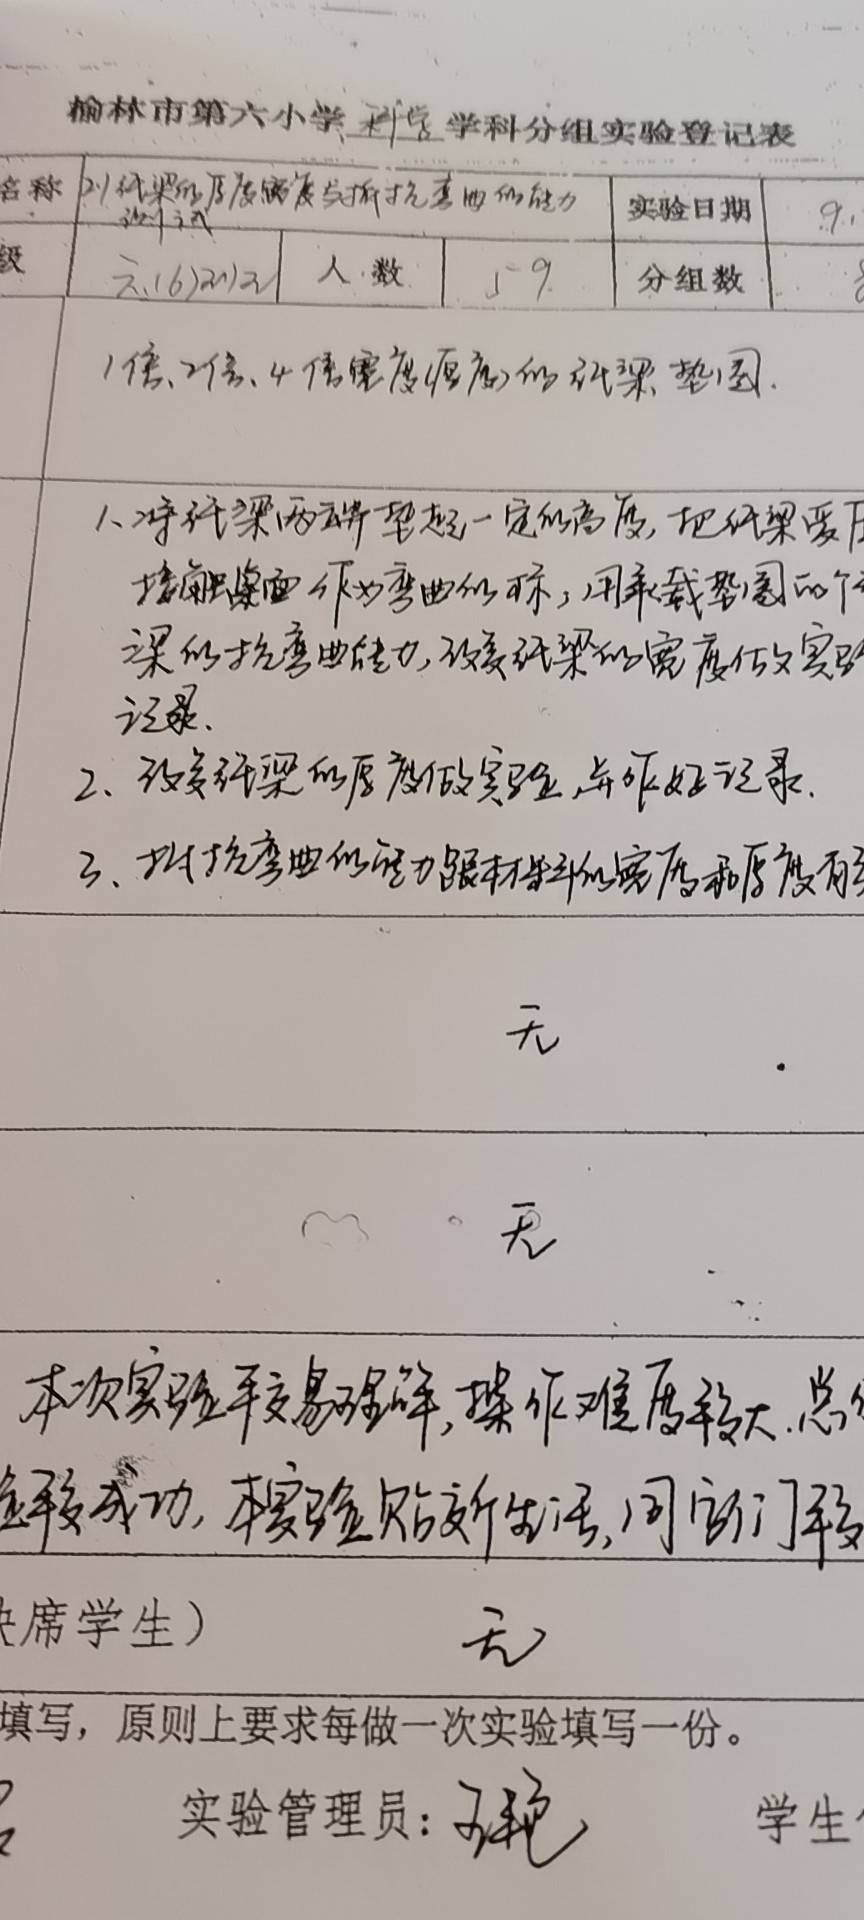 榆林市第六小学科学学科分组实验登记表
名称 纸梁的厚度宽度与抵抗弯曲的能力 实验日期 9.
测试
级 六(6) 人数 59 分组数 8
1倍、2倍、4倍宽度(厚度)的纸梁、垫圈.
1、将纸梁两端垫起一定的高度,把纸梁受压
接触桌面作为弯曲的标,用承载垫圈的个
梁的抗弯曲能力,改变纸梁的宽度做实验
记录.
2、改变纸梁的厚度做实验,并作好记录.
3、抵抗弯曲的能力跟材料的宽度和厚度有
无
无
本次实验平交易理解,操作难度较大.总
验较成功,本实验贴近生活,同们较
缺席学生) 无
填写,原则上要求每做一次实验填写一份。
实验管理员: 学生